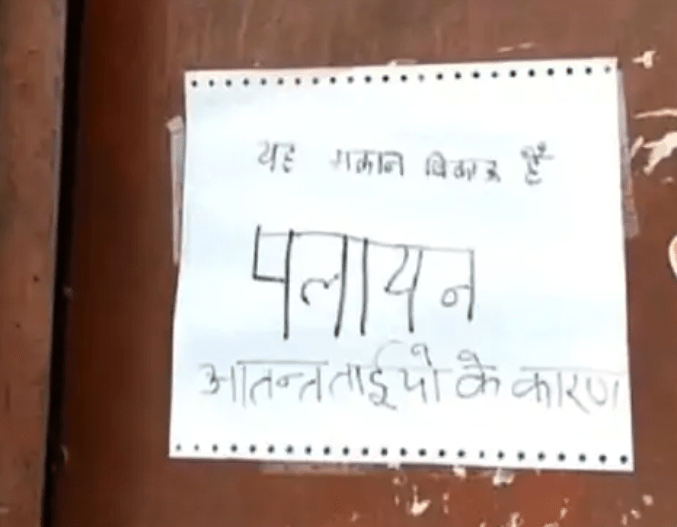 यह मकान बिकाऊ हैं
पलायन
आतन्तताईयो के कारण